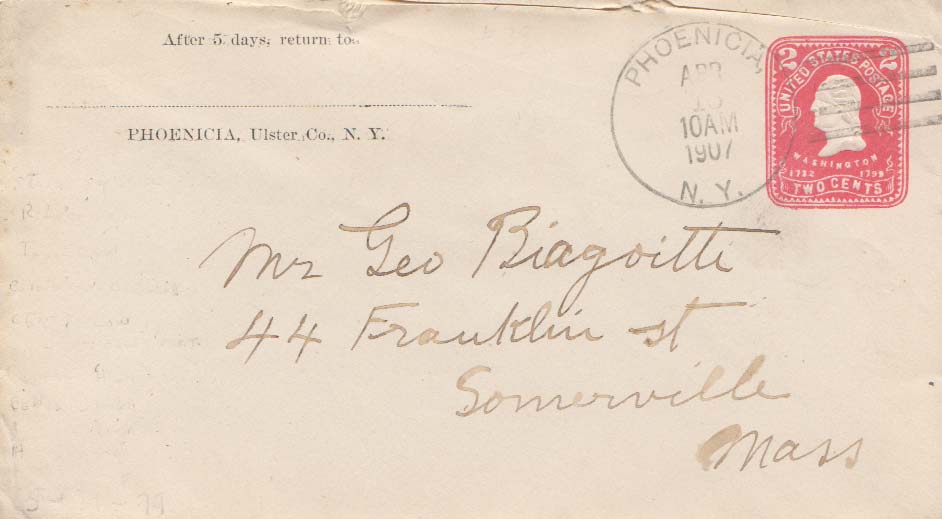 After 5 days, return to
PHOENICIA, Ulster Co., N. Y.
PHOENICIA,
APR
10AM
1907
N. Y.
2 2
UNITED STATES POSTAGE
WASHINGTON
1732 1799
TWO CENTS
Mr Geo Biagoitti
44 Franklin st
Somerville
Mass